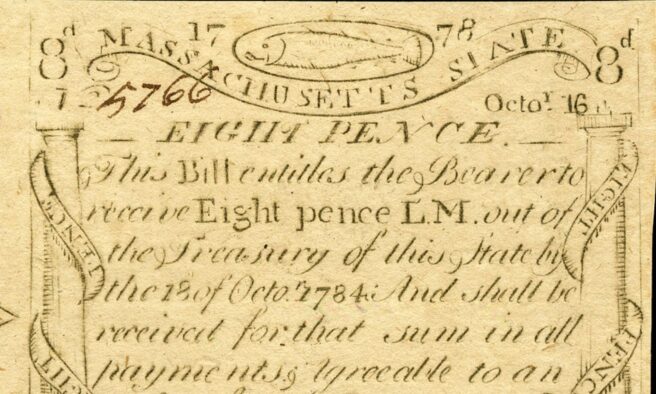 8d 17 78 8d
MASSACHUSETTS STATE
5766 Octor. 16
EIGHT PENCE.
This Bill entitles the Bearer to
receive Eight pence L.M. out of
the Treasury of this State by
the 18 of Octor. 1784. And shall be
received for that sum in all
payments, Agreeable to an
PENCE EIGHT
EIGHT PENCE